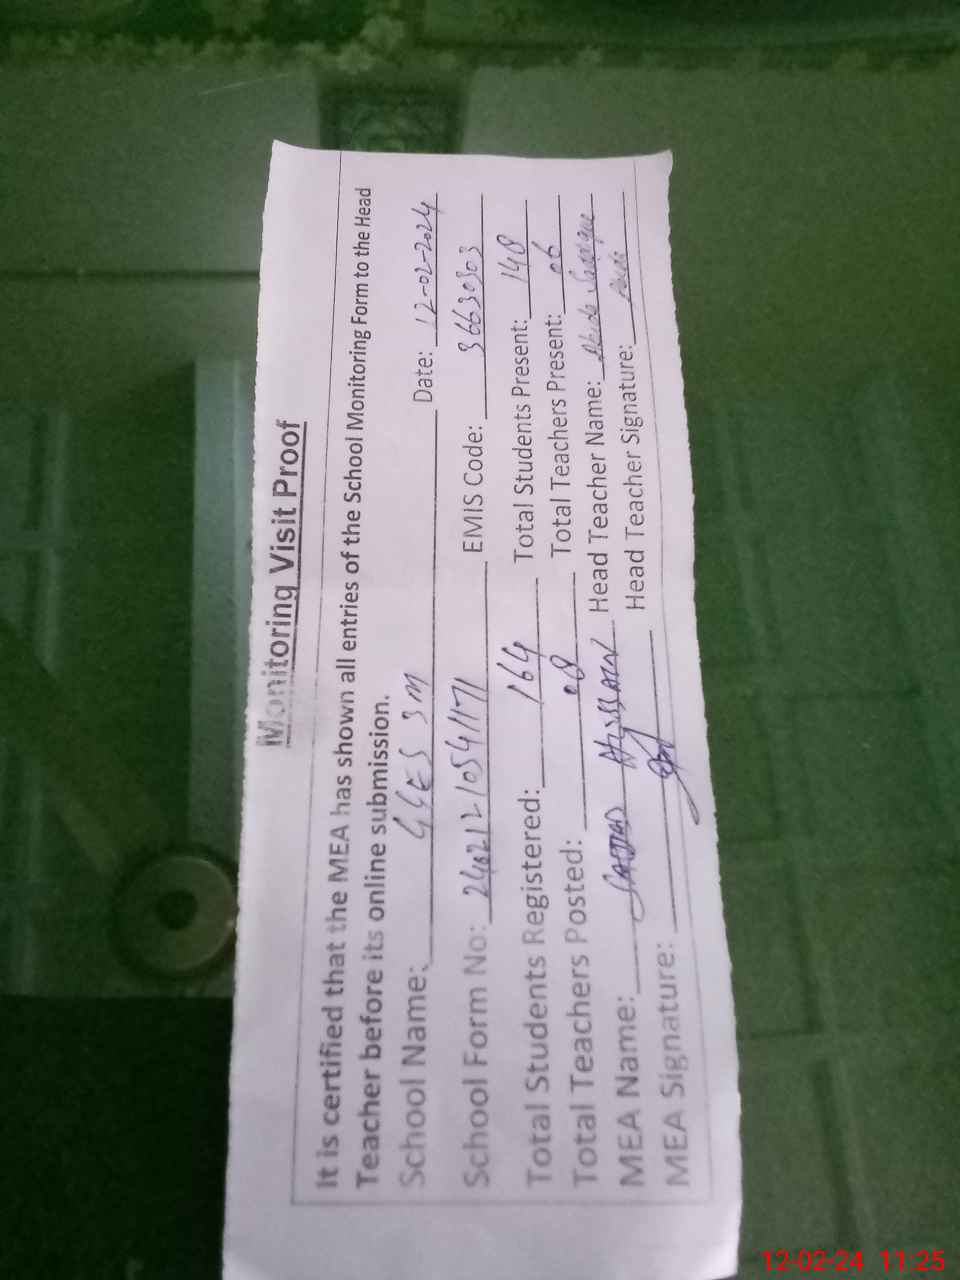 Monitoring Visit Proof
It is certified that the MEA has shown all entries of the School Monitoring Form to the Head
Teacher before its online submission.
School Name: GGES 3M Date: 12-02-2024
School Form No: EMIS Code: 36630303
Total Students Registered: 164 Total Students Present: 148
Total Teachers Posted: 08 Total Teachers Present: 06
MEA Name: Hussain Head Teacher Name:
MEA Signature: Head Teacher Signature:
12-02-24 11:25